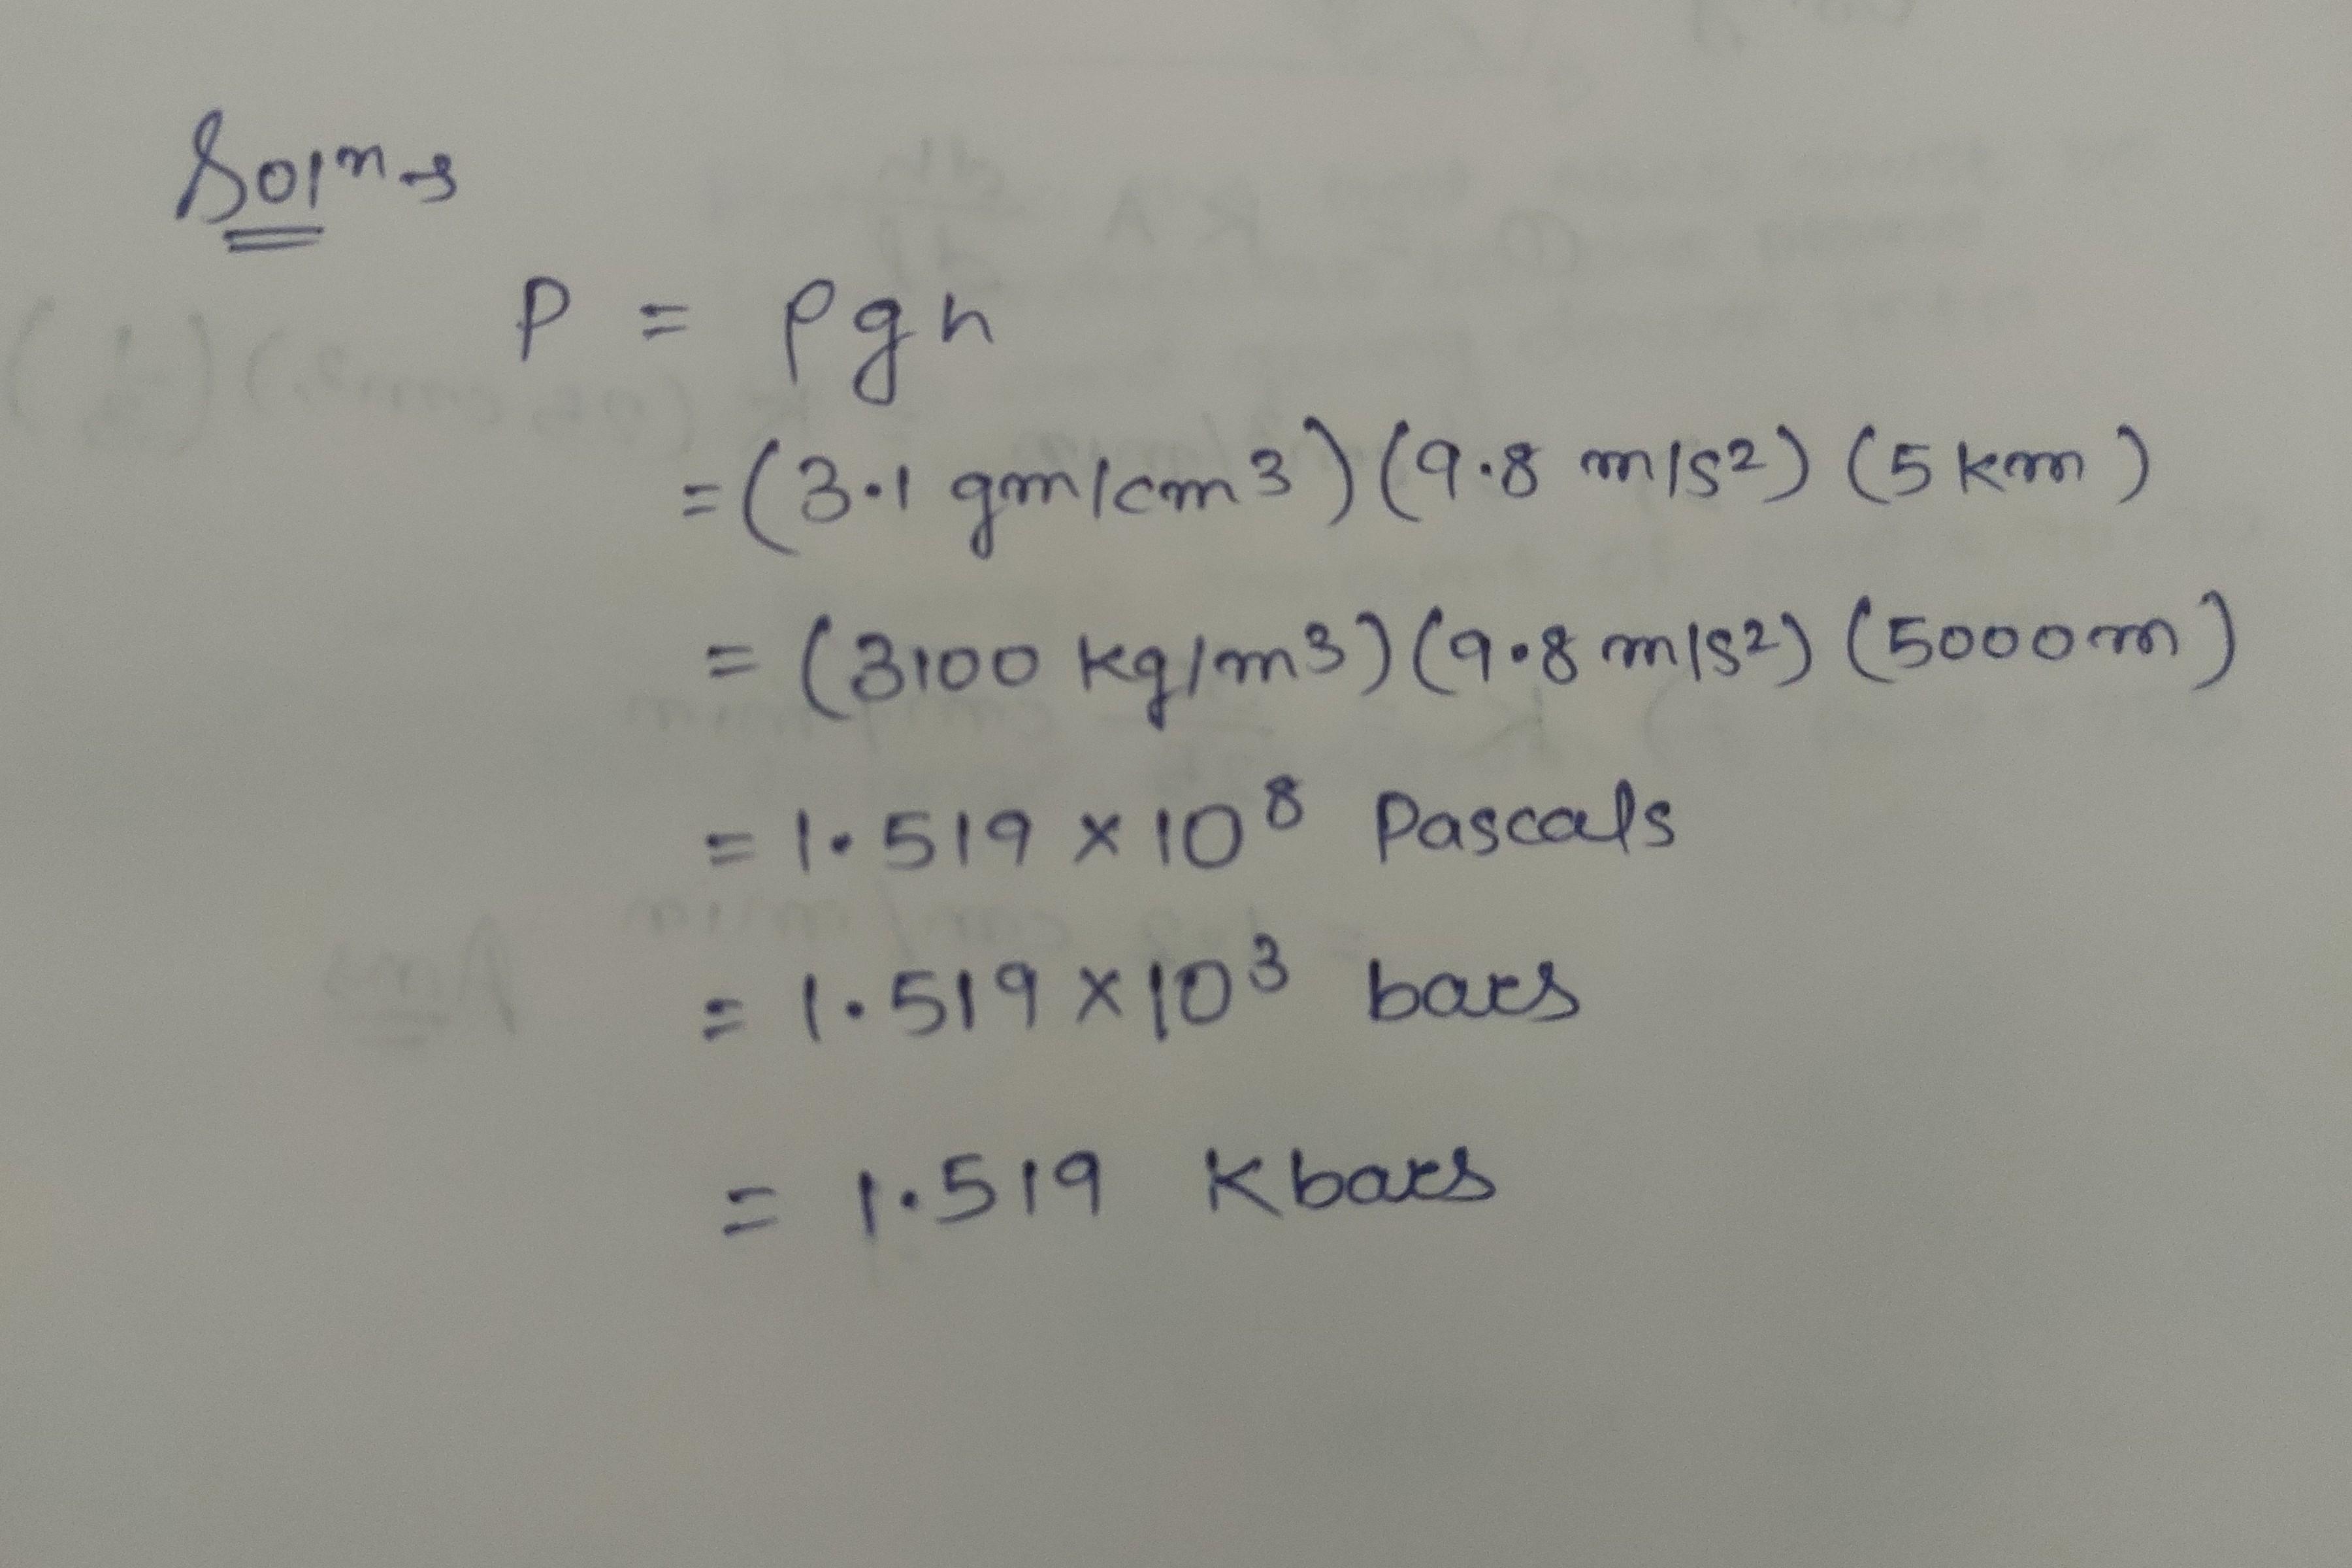 Solⁿ →
P = ρgh
= (3.1 gm/cm3) (9.8 m/s2) (5 km)
= (3100 kg/m3) (9.8 m/s2) (5000 m)
= 1.519 × 10⁸ Pascals
= 1.519 × 10³ bars
= 1.519 Kbars